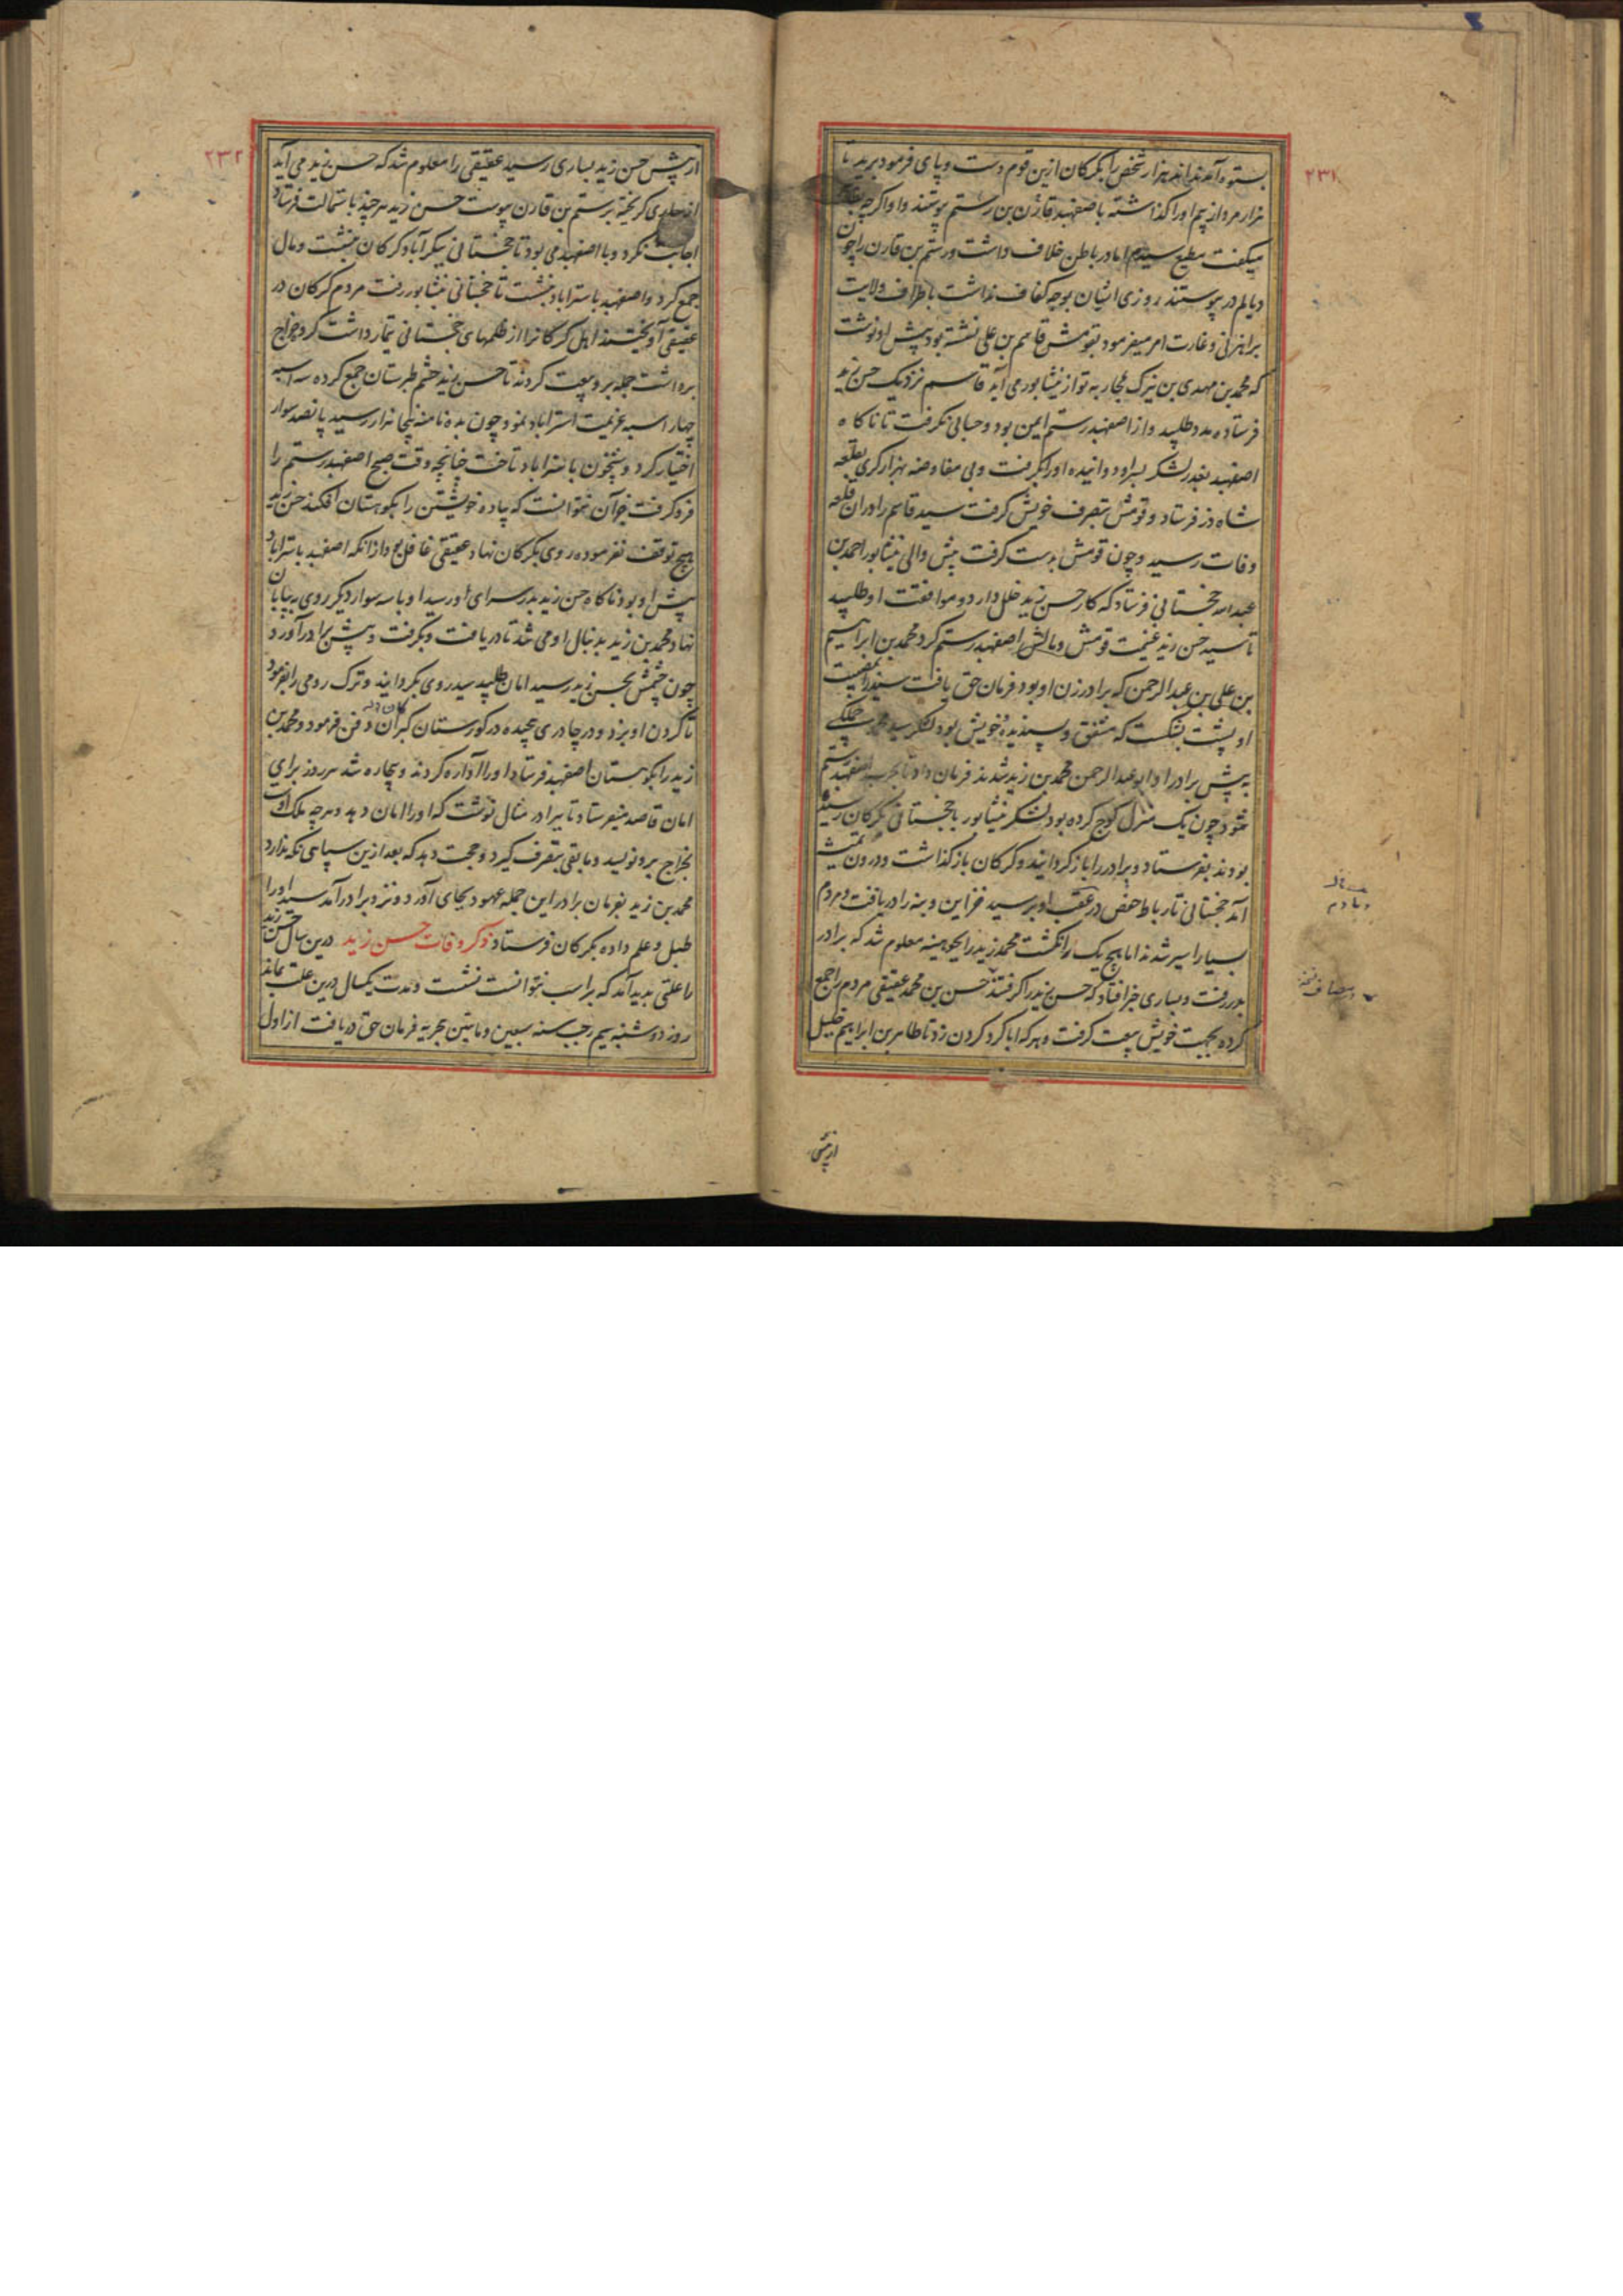 ۲۳۱
بستوه آمدند اند هزار شخص را بکرکان ازین قوم دست و پای فرمود برید تا
هزار مرد از بیم او را کذاشته باصفهبد قارن بن رستم پیوستند و او اکرچه
میکفت مطیع سیدم اما در باطن خلاف داشت و رستم بن قارن را چون
دیالم در پیوستند روزی ایشان بوجه کفاف نداشت باطراف ولایت
براهزنی و غارت امر میفرمود بقومش قاسم بن علی نشسته بود پیش او نوشت
که محمد بن مهدی بن نیرک بمحاربه تو از نیشابور می آید قاسم نزدیک حسن زید
فرستاده مدد طلبید و از اصفهبد رستم ایمن بود و حسابی نکرفت تا ناکاه
اصفهبد بغدر لشکر بسر او دوانیده او را بکرفت و بی مفاوضه بهزارکری بقلعه
شاه دز فرستاد و قومش بتصرف خویش کرفت سید قاسم را در ان قلعه
وفات رسید و چون قومش بدست کرفت پیش والی نیشابور احمد بن
عبدالله خجستانی فرستاد که کار حسن زید خلل دارد و موافقت او طلبید
تا سید حسن زید عزیمت قومش و مالش اصفهبد رستم کرد محمد بن ابراهیم
بن علی بن عبدالرحمن که برادر زن او بود فرمان حق یافت سید را بمصیبت
او پشت بشکست که متفق و پسندیده خویش بود لشکر سید
به پیش برادر او ابو عبدالرحمن محمد بن زید شدند فرمان داد تا بحرب اصفهبد رستم
شود چون یک منزل کوچ کرده بود لشکر نیشابور با خجستانی بکرکان رسیده
بودند بفرستاد و برادر را باز کردانید و کرکان باز کذاشت و درون تمیشه
آمد خجستانی تا رباط حفص در عقب او برسید خزاین و بنه را دریافت و مردم
بسیار اسیر شدند اما هیچ یک را نکشت محمد زید را بجوهینه معلوم شد که برادر
بدر رفت و بساری خبر افتاد که حسن زید را کرفتند حسن بن محمد عقیقی مردم را جمع
کرده بجهت خویش بیعت کرفت و هر که ابا کرد کردن زد تا طاهر بن ابراهیم خلیل
از پیش
۲۳۲
از پیش حسن زید بساری رسید عقیقی را معلوم شد که حسن زید می آید
از ساری کریخته برستم بن قارن پیوست حسن زید هر چند باستمالت فرستاد
اجابت نکرد و با اصفهبد می بود تا خجستانی ببکرآباد کرکان بنشست و مال
جمع کرد و اصفهبد باستراباد بنشست تا خجستانی بنیشابور رفت مردم کرکان در
عقیقی آویختند اهل کرکان را از ظلمهای خجستانی تیمار داشت کرد و خراج
برداشت جمله برو بیعت کردند تا حسن زید حشم طبرستان جمع کرده سه اسبه
چهار اسبه عزیمت استراباد نمود چون بده نامنه پنجاه هزار رسید پانصد سوار
اختیار کرد و شبیخون باستراباد تاخت چنانچه وقت صبح اصفهبد رستم را
فرو کرفت جز آن نتوانست که پیاده خویشتن را بکوهستان افکند حسن زید
هیچ توقف نفرموده روی بکرکان نهاد عقیقی غافل بود از انکه اصفهبد باستراباد
پیش او بود ناکاه حسن زید بدر سرای او رسید او با سه سوار دیکر روی به بیابان
نهاد محمد بن زید بدنبال او می شد تا دریافت و بکرفت و پیش برادر آورد
چون چشمش بحسن زید رسید امان طلبید سید روی بکردانید و ترک رومی را بفرمود
تا کردن او بزد و در چادری پیچیده در کورستان کبران دفن فرمود و محمد بن
زید را بکوهستان اصفهبد فرستاد او را آواره کردند و بیچاره شد هر روز برای
امان قاصد میفرستاد تا برادر مثال نوشت که او را امان دهد و هر چه ملک اوست
بخراج برو نویسد و مابقی بتصرف کیرد و حجت دهد که بعد ازین سپاهی نکه ندارد
محمد بن زید بفرمان برادر این جمله عهود بجای آورد و نزد برادر آمد سید او را
طبل و علم داده بکرکان فرستاد ذکر وفات حسن زید درین سال حسن زید
را علتی پدید آمد که بر اسب نتوانست نشست و مدت یکسال درین علت بماند
روز دوشنبه سیم رجب سنه سبعین و مایتین هجریه فرمان حق دریافت از اول